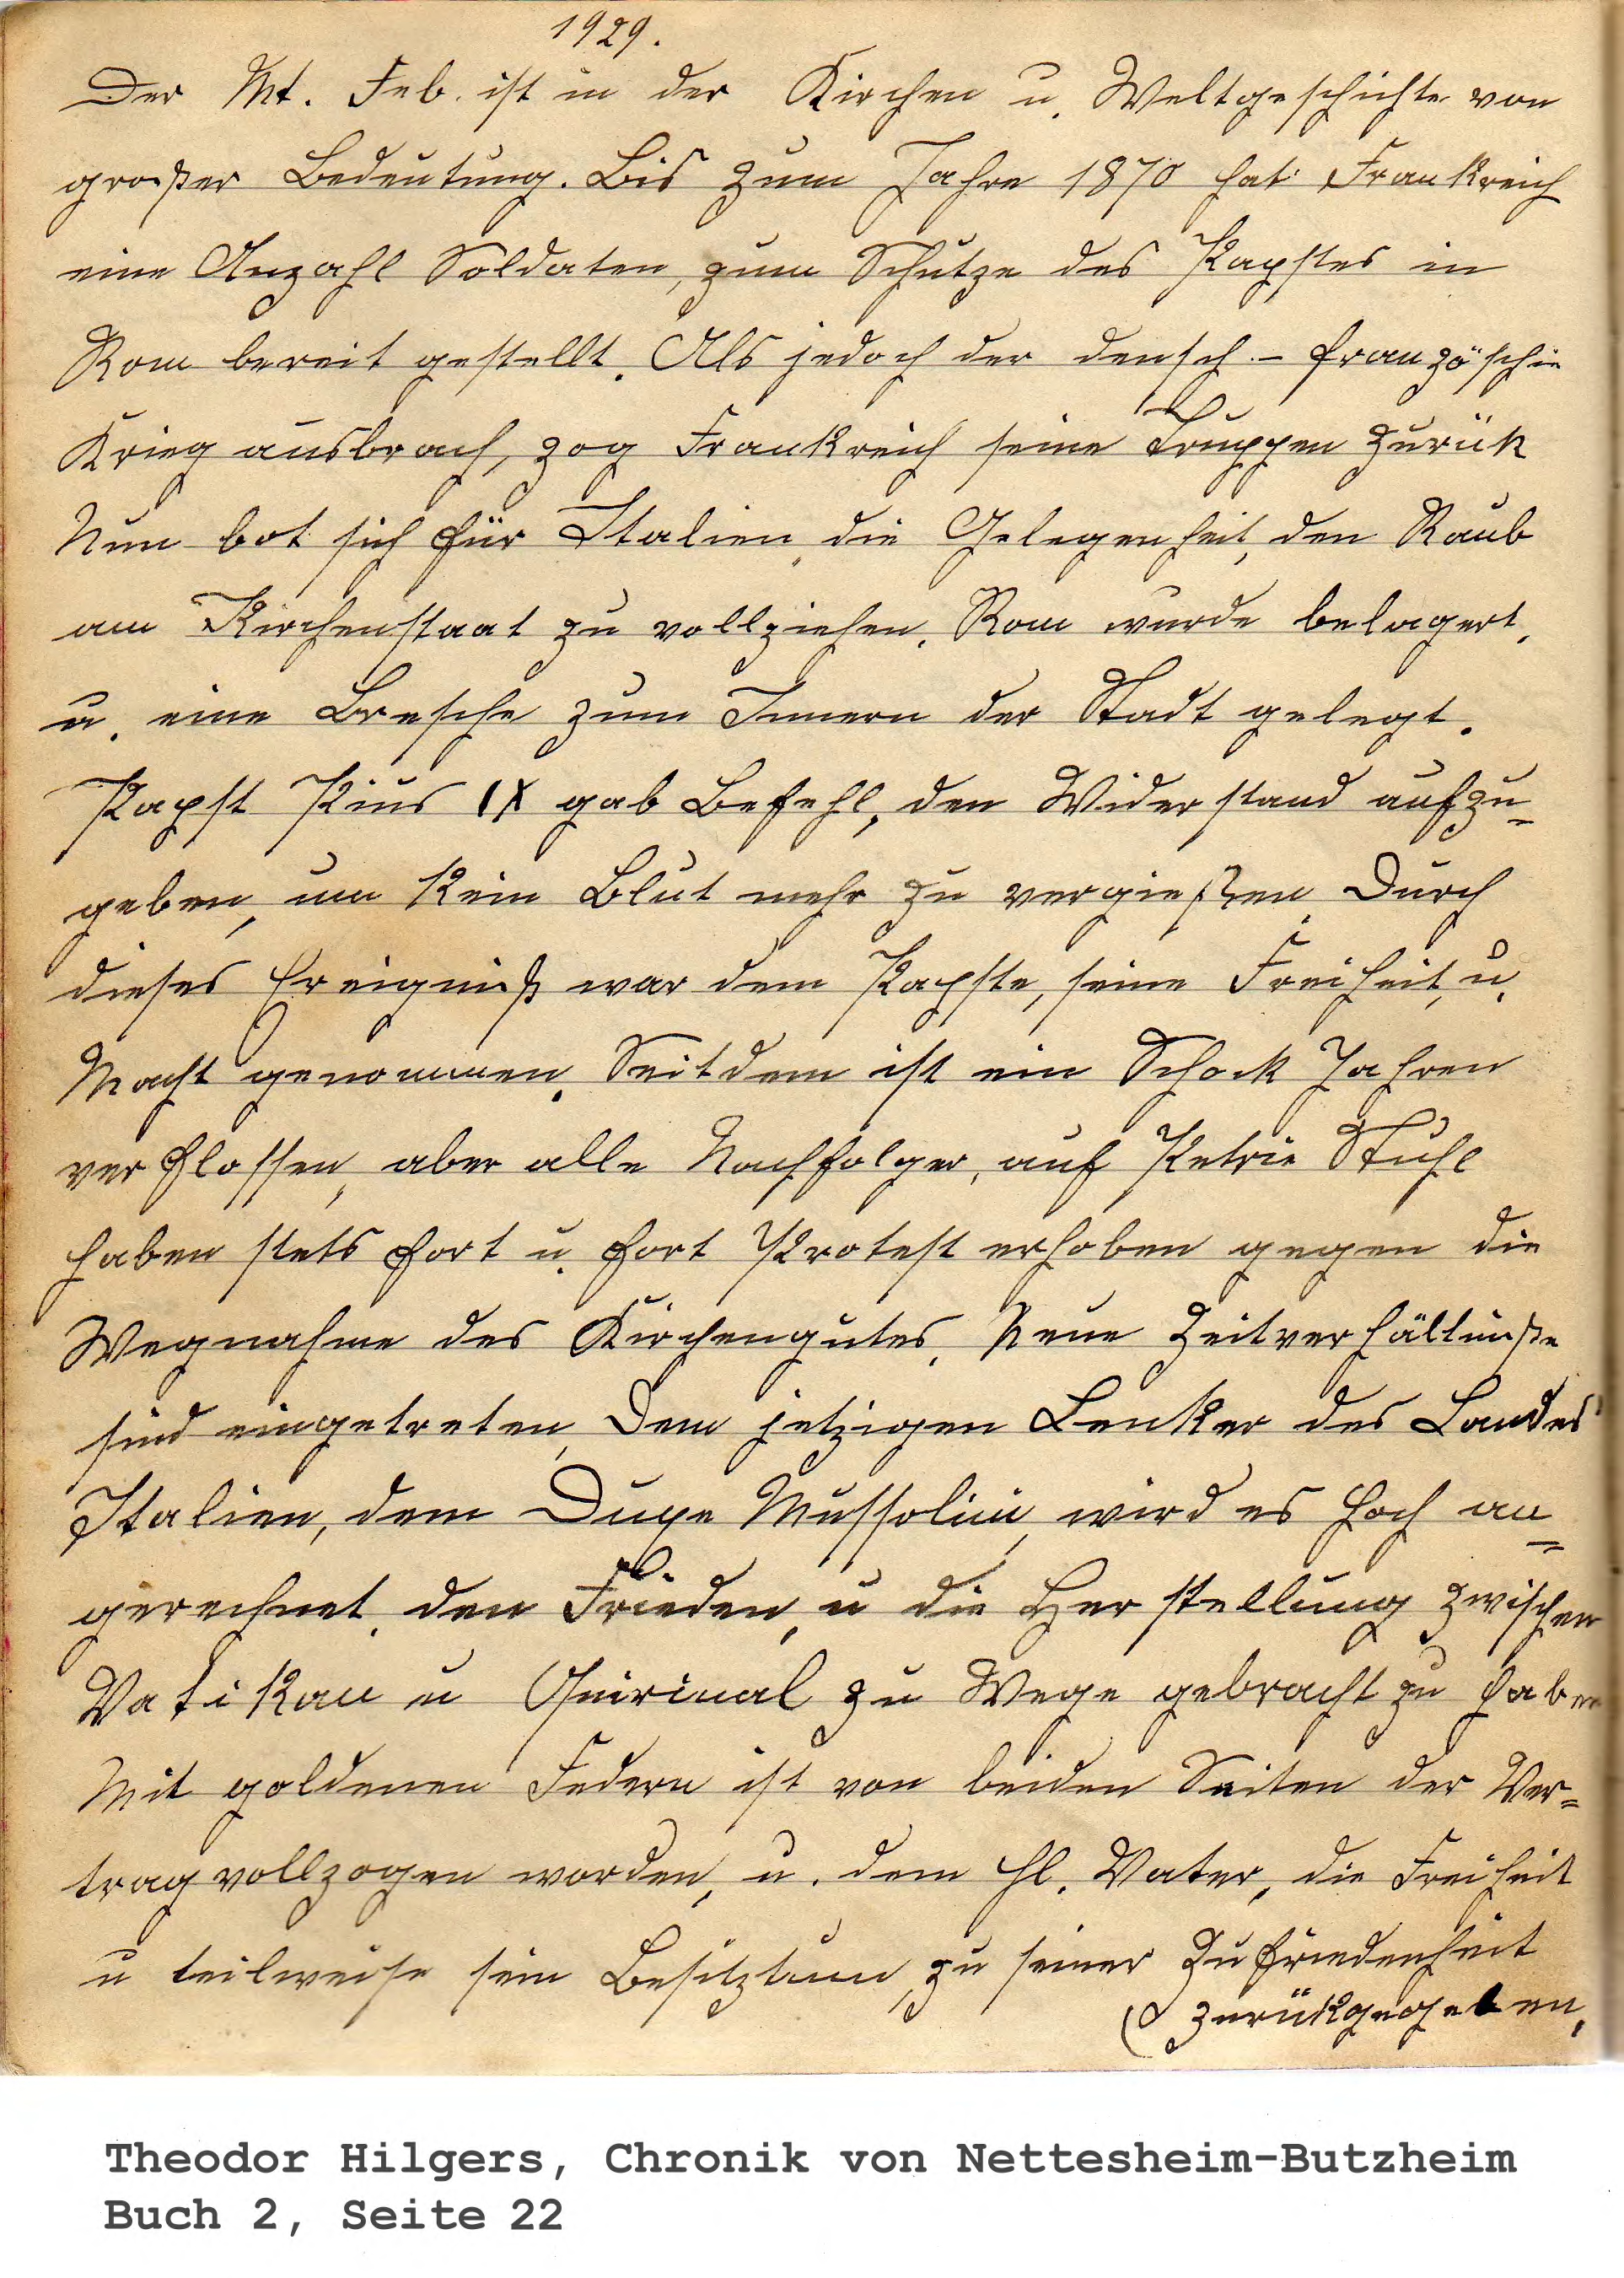 1929.
Der Mt. Feb. ist in der Kirchen u. Weltgeschichte von
großer Bedeutung. Bis zum Jahre 1870 hat Frankreich
eine Anzahl Soldaten, zum Schutze des Papstes in
Rom bereit gestellt. Als jedoch der deusch.- französchie
Krieg ausbrach, zog Frankreich seine Truppen zurük
Nun bot sich für Italien, die Gelegenheit, den Raub
am Kirchenstaat zu vollziehen. Rom wurde belagert,
u. eine Bresche zum Innern der Stadt gelegt.
Papst Pius IX gab Befehl, den Widerstand aufzu=
geben, um kein Blut mehr zu vergießen. Durch
dieses Ereigniß war dem Papste, seine Freiheit, u.
Macht genommen. Seitdem ist ein Schock Jahren
verflossen, aber alle Nachfolger, auf Petrie Stuhl
haben stets fort u. fort Protest erhoben gegen die
Wegnahme des Kirchengutes. Neue Zeitverhältniße
sind eingetreten, Dem jetzigen Lenker des Landes
Italien, dem Duxe Mussolini, wird es hoch an=
gerechnet, den Frieden, u die Herstellung zwischen
Vatikan u Quirinal zu Wege gebracht zu haben
Mit goldenen Federn ist von beiden Seiten der Ver=
trag vollzogen worden, u. dem hl. Vater, die Freiheit
u teilweise sein Besitztum, zu seiner Zufriedenheit
zurükgegeben,
Theodor Hilgers, Chronik von Nettesheim-Butzheim
Buch 2, Seite 22